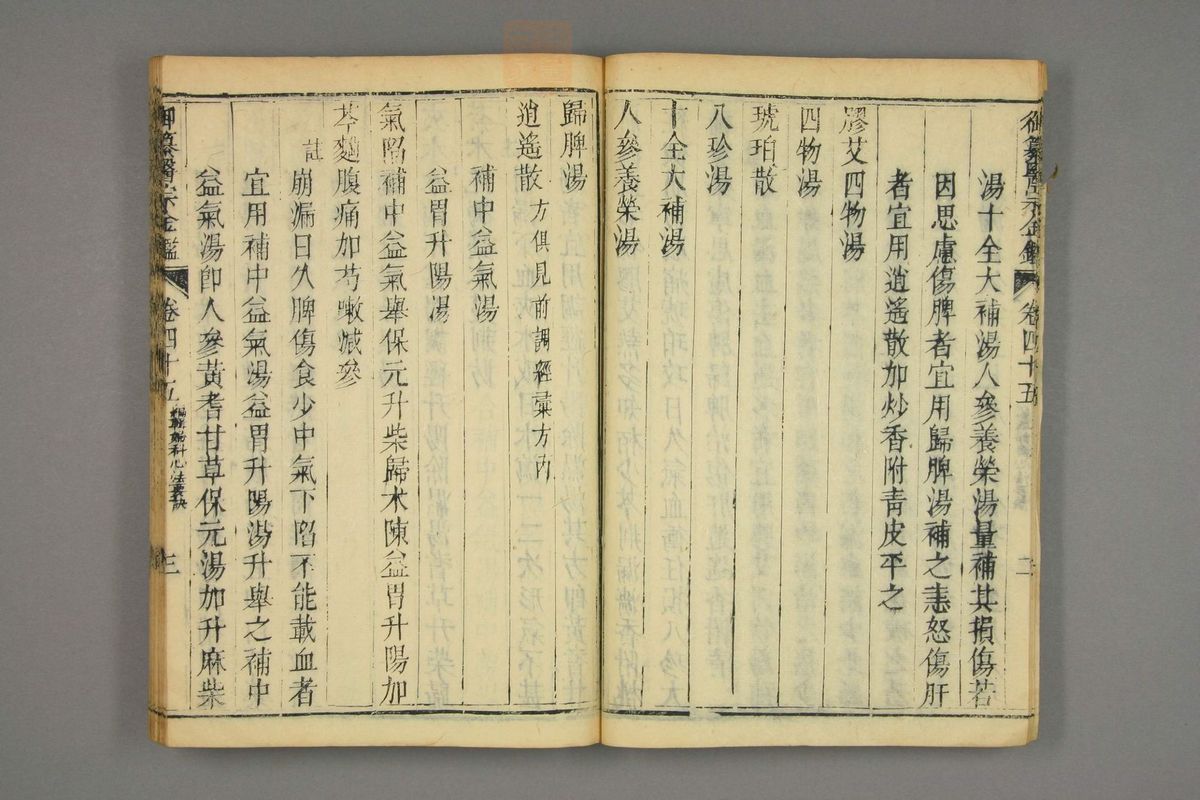 御纂醫宗金鑑 卷四十五 二
湯十全大補湯人參養榮湯量補其損傷若
因思慮傷脾者宜用歸脾湯補之恚怒傷肝
者宜用逍遙散加炒香附青皮平之
膠艾四物湯
四物湯
琥珀散
八珍湯
十全大補湯
人參養榮湯
歸脾湯
逍遙散 方俱見前調經彙方內
補中益氣湯
益胃升陽湯
氣陷補中益氣舉保元升柴歸朮陳益胃升陽加
芩麯腹痛加芍嗽減參
註
崩漏日久脾傷食少中氣下陷不能載血者
宜用補中益氣湯益胃升陽湯升舉之補中
益氣湯卽人參黃耆甘草保元湯加升麻柴
御纂醫宗金鑑 卷四十五 編輯婦科心法要訣 三